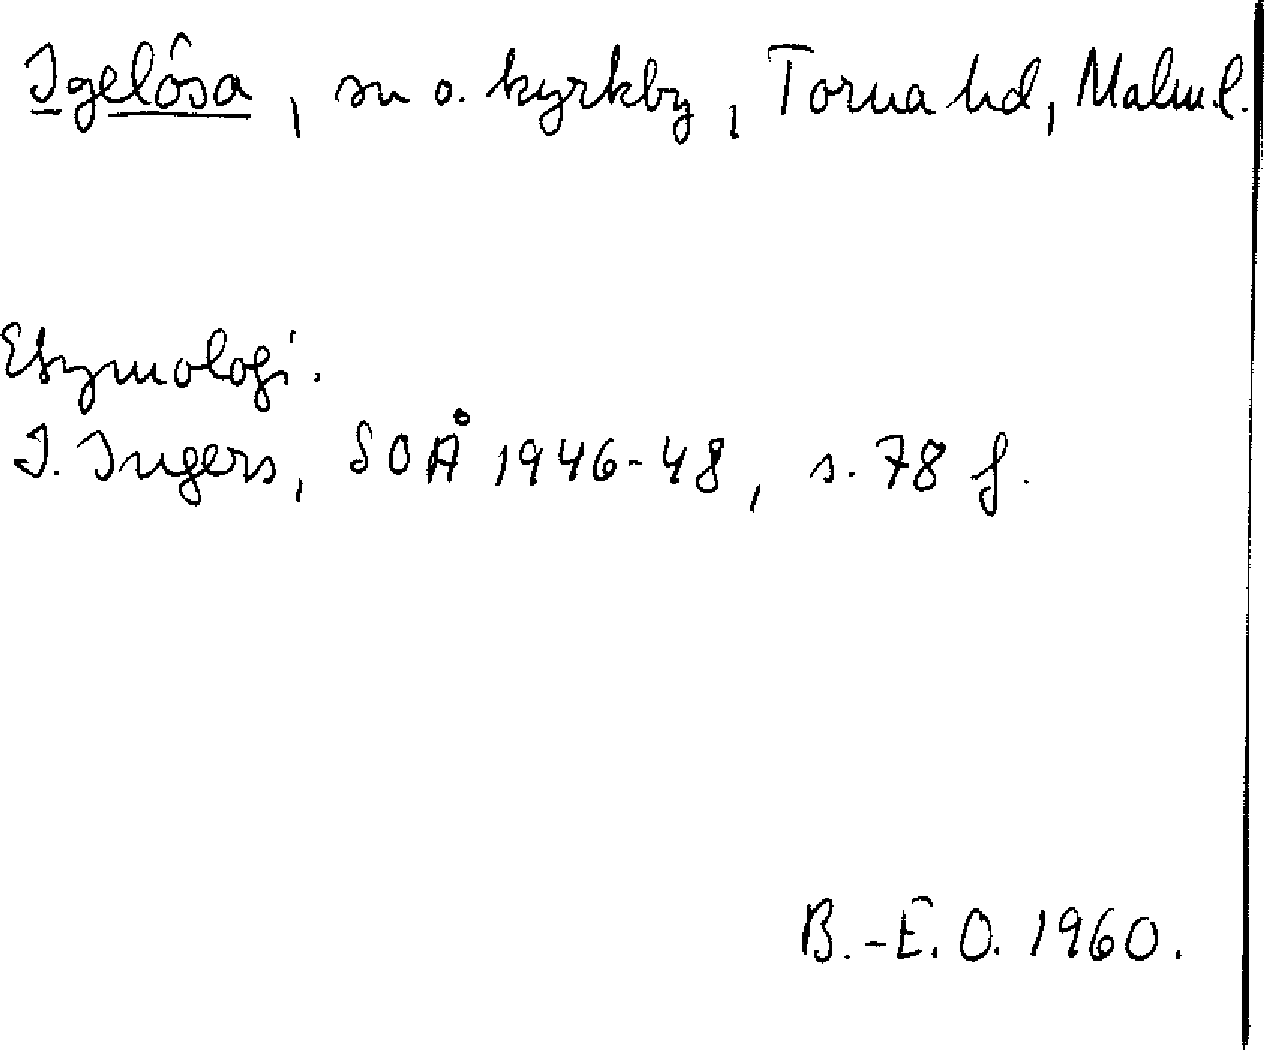 Igelösa, sn o. kyrkby, Torna hd, Malm.l.
Etymologi.
I. Ingers, SOÅ 1946-48, s. 78 f.
B.-E. O. 1960.